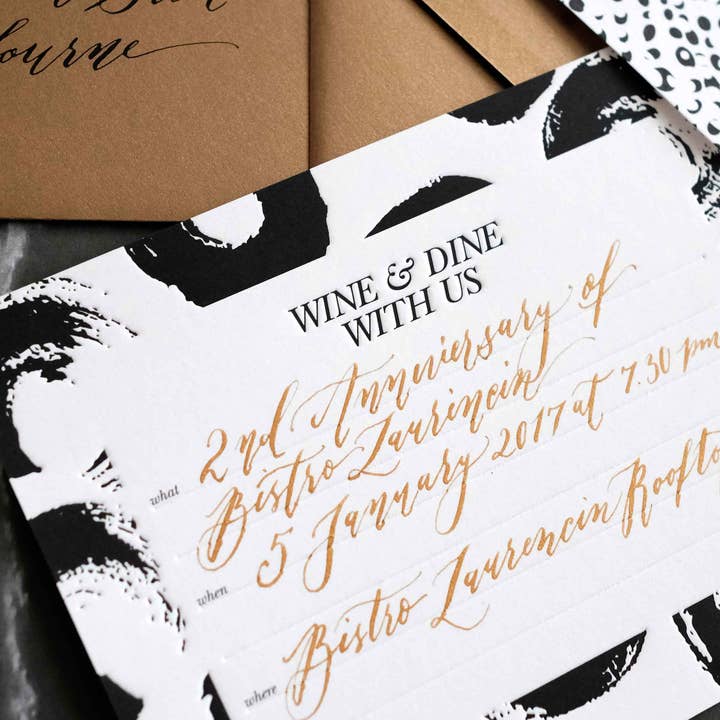 WINE & DINE
WITH US
what 2nd Anniversary of
Bistro Laurencin
when 5 January 2017 at 7.30 pm
where Bistro Laurencin Roofto